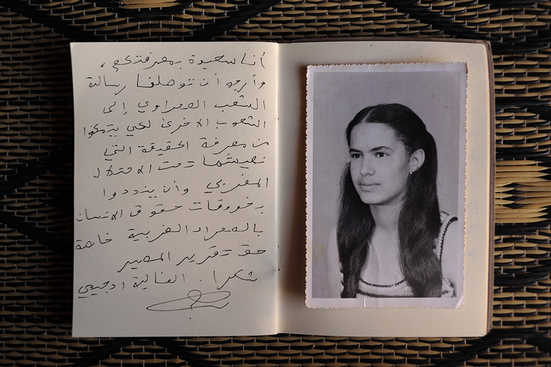 أنا سعيدة بمعرفتكم،
وأرجو أن توصلوا رسالة
الشعب الصحراوي إلى
الشعوب الأخرى لكي يتمكنوا
من معرفة الحقيقة التي
نعيشها تحت الاحتلال
المغربي وأن ينددوا
بخروقات حقوق الانسان
بالصحراء الغربية خاصة
حق تقرير المصير
شكرا. الغالية ادجيمي